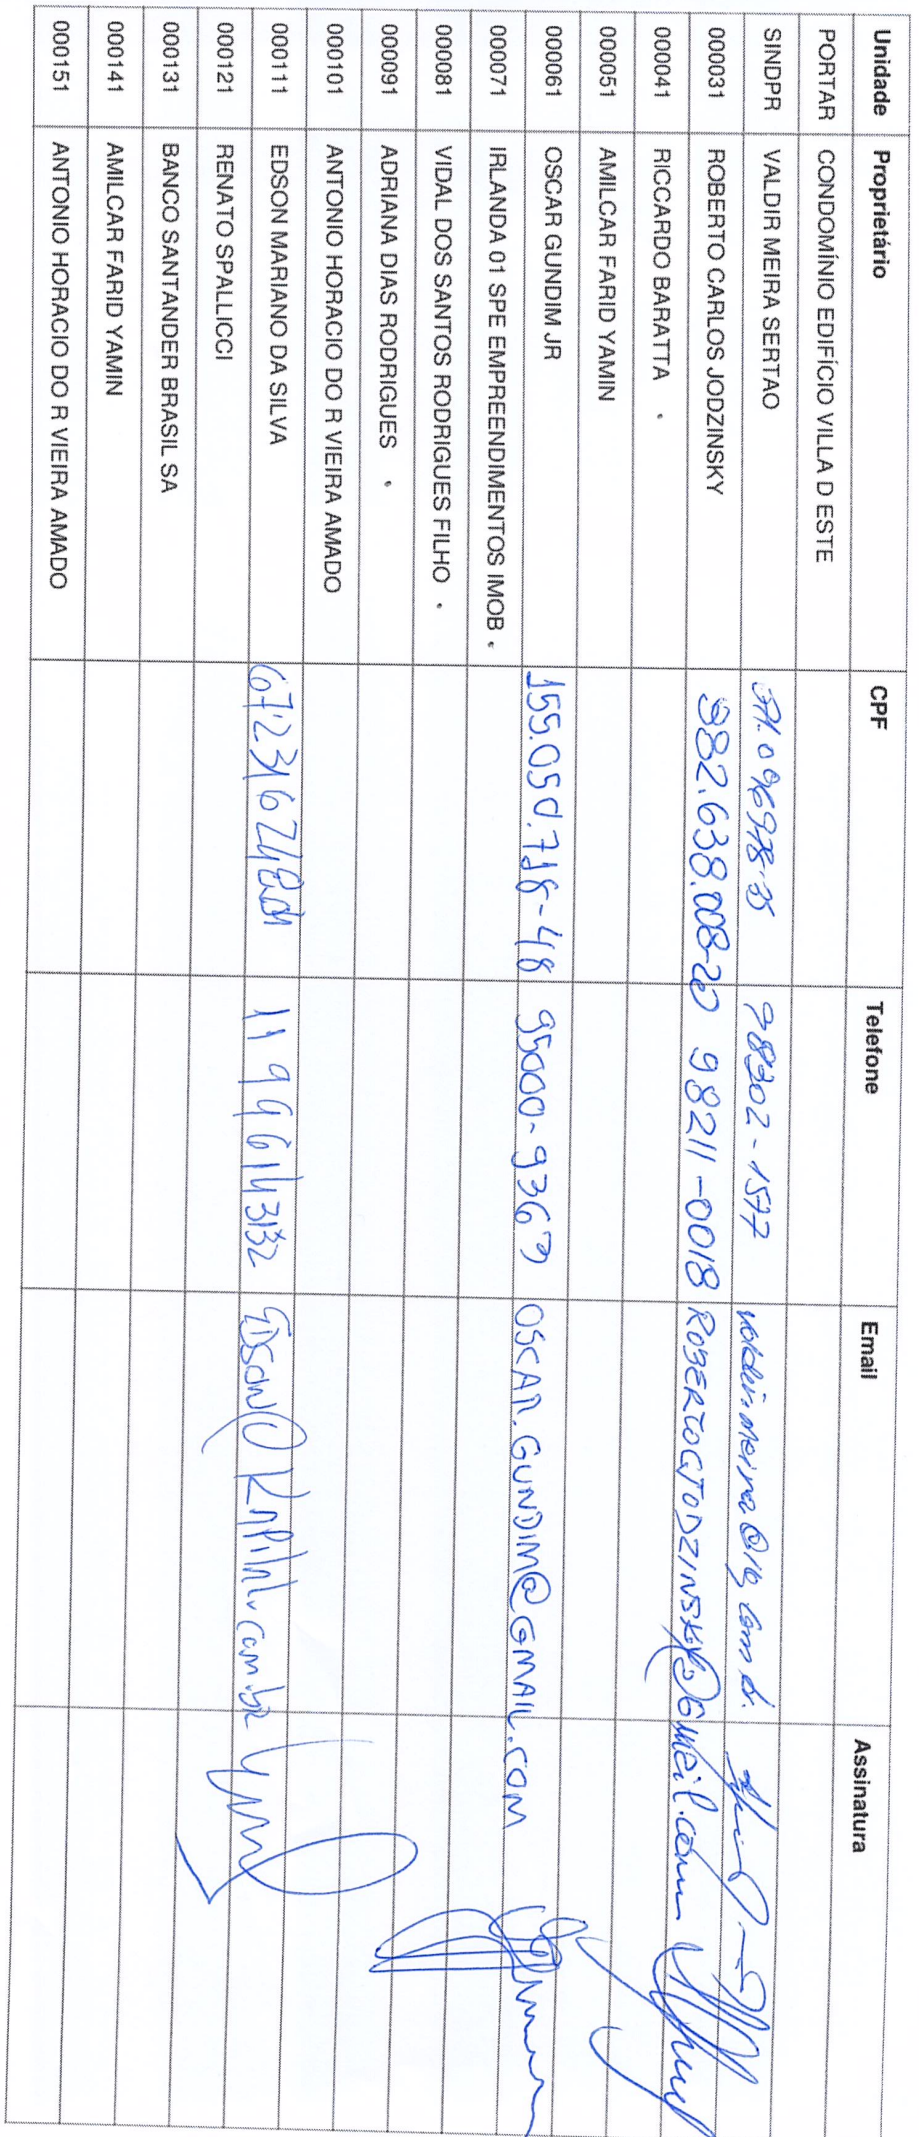 Unidade Proprietário CPF Telefone Email Assinatura
PORTAR CONDOMÍNIO EDIFÍCIO VILLA D ESTE
SINDPR VALDIR MEIRA SERTAO 98302-1577
000031 ROBERTO CARLOS JODZINSKY 982.638.008-20 98211-0018 ROBERTOCJODZINSKY@GMAIL.COM
000041 RICCARDO BARATTA
000051 AMILCAR FARID YAMIN
000061 OSCAR GUNDIM JR 155.050.718-48 95000-9367 OSCAR.GUNDIM@GMAIL.COM
000071 IRLANDA 01 SPE EMPREENDIMENTOS IMOB
000081 VIDAL DOS SANTOS RODRIGUES FILHO
000091 ADRIANA DIAS RODRIGUES
000101 ANTONIO HORACIO DO R VIEIRA AMADO
000111 EDSON MARIANO DA SILVA 11 996143132
000121 RENATO SPALLICCI
000131 BANCO SANTANDER BRASIL SA
000141 AMILCAR FARID YAMIN
000151 ANTONIO HORACIO DO R VIEIRA AMADO